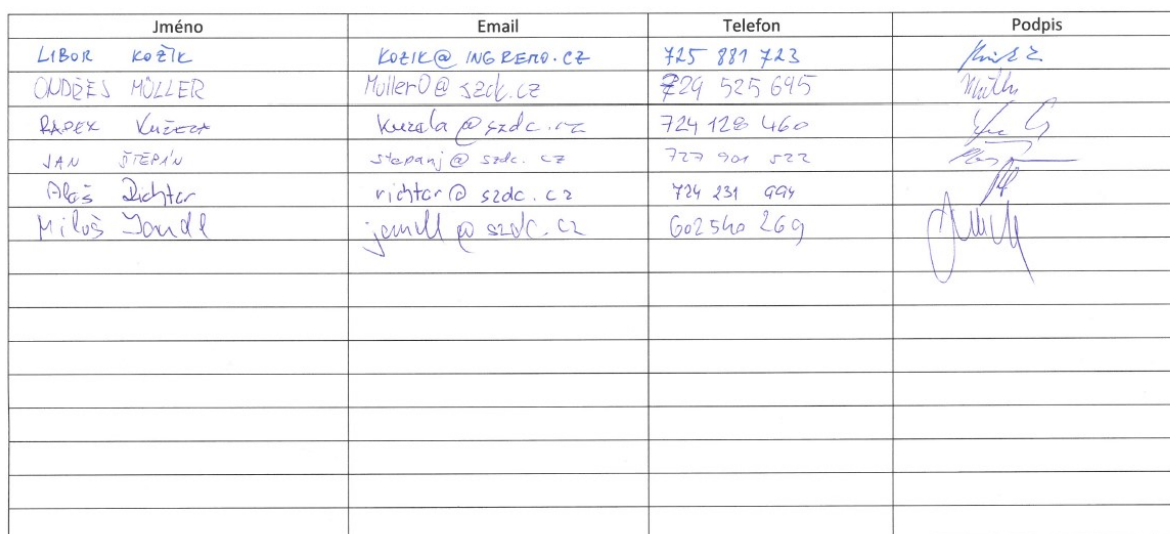 Jméno Email Telefon Podpis
LIBOR KOŽÍK KOZIK@INGREMO.CZ 725 881 723
ONDŘEJ MÜLLER MullerO@szdc.cz 729 525 695
RADEK KUŽELA kuzela@szdc.cz 724 128 460
JAN ŠTĚPÁN stepanj@szdc.cz 727 901 522
Aleš Richter richter@szdc.cz 724 231 994
Miloš Jandl jandl@szdc.cz 602 540 269